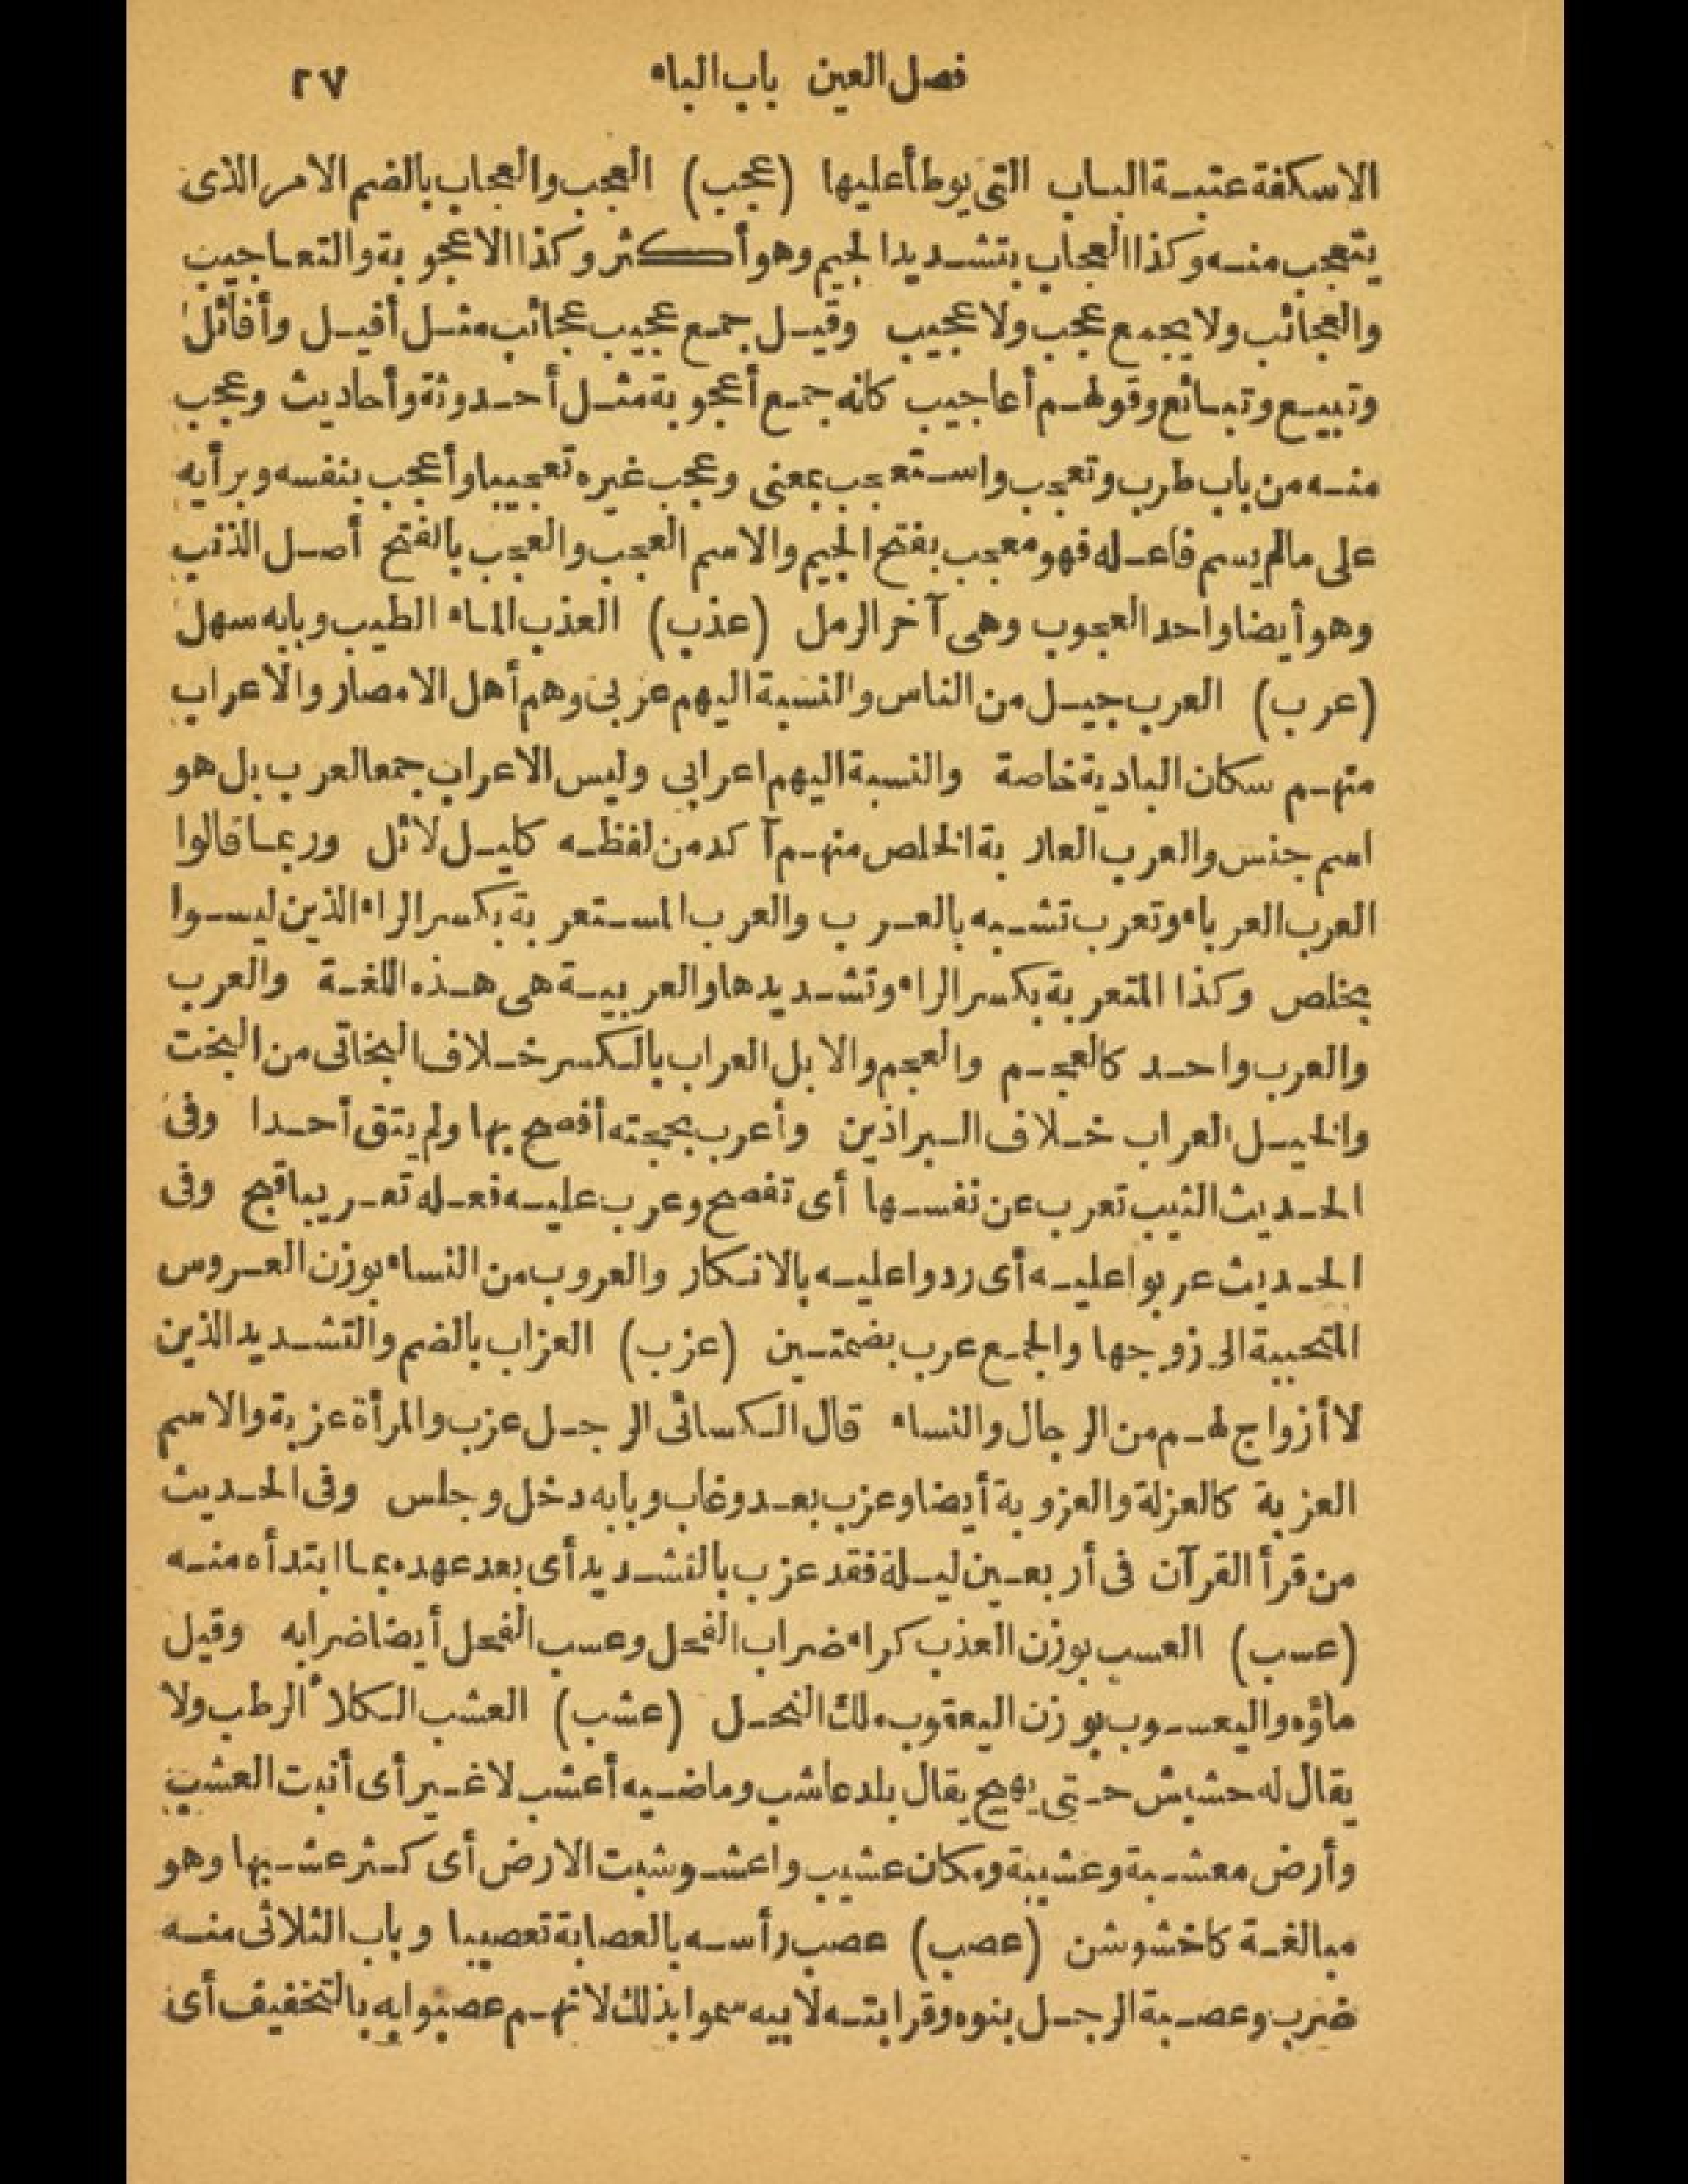 فصل العين باب الباء ٢٧
الاسكفة عتبة الباب التى يوطأ عليها (عجب) العجب والعجاب بالضم الامر الذى
يتعجب منه وكذا العجاب بتشديد الجيم وهو أكثر وكذا الاعجوبة والتعاجيب
والعجائب ولا يجمع عجب ولا عجيب وقيل جمع عجيب عجائب مثل أفيل وأفائل
وتبيع وتبائع وقولهم أعاجيب كانه جمع أعجوبة مثل أحدوثة وأحاديث وعجب
منه من باب طرب وتعجب واستعجب بمعنى وعجب غيره تعجيبا وأعجب بنفسه وبرأيه
على مالم يسم فاعله فهو معجب بفتح الجيم والاسم العجب والعجب بالفتح أصل الذنب
وهو أيضا واحد العجوب وهى آخر الرمل (عذب) العذب الماء الطيب وبابه سهل
(عرب) العرب جيل من الناس والنسبة اليهم عربى وهم أهل الامصار والاعراب
منهم سكان البادية خاصة والنسبة اليهم اعرابى وليس الاعراب جمعا لعرب بل هو
اسم جنس والعرب العاربة الخلص منهم آكد من لفظه كليل لائل وربما قالوا
العرب العرباء وتعرب تشبه بالعرب والعرب المستعربة بكسر الراء الذين ليسوا
بخلص وكذا المتعربة بكسر الراء وتشديدها والعربية هى هذه اللغة والعرب
والعرب واحد كالعجم والعجم والابل العراب بالكسر خلاف البخاتى من البخت
والخيل العراب خلاف البراذين وأعرب بحجته أفصح بها ولم يتق أحدا وفى
الحديث الثيب تعرب عن نفسها أى تفصح وعرب عليه فعله تعريبا قبح وفى
الحديث عربوا عليه أى ردوا عليه بالانكار والعروب من النساء بوزن العروس
المتحببة الى زوجها والجمع عرب بضمتين (عزب) العزاب بالضم والتشديد الذين
لا أزواج لهم من الرجال والنساء قال الكسائى الرجل عزب والمرأة عزبة والاسم
العزبة كالعزلة والعزوبة أيضا وعزب بعد وغاب وبابه دخل وجلس وفى الحديث
من قرأ القرآن فى أربعين ليلة فقد عزب بالتشديد أى بعد عهده بما ابتدأه منه
(عسب) العسب بوزن العذب كراء ضراب الفحل وعسب الفحل أيضا ضرابه وقيل
ماؤه واليعسوب بوزن اليعقوب ملك النحل (عشب) العشب الكلأ الرطب ولا
يقال له حشيش حتى يهيج يقال بلد عاشب وماضيه أعشب لا غير أى أنبت العشب
وأرض معشبة وعشيبة ومكان عشيب واعشوشبت الارض أى كثر عشبها وهو
مبالغة كاخشوشن (عصب) عصب رأسه بالعصابة تعصيبا وباب الثلاثى منه
ضرب وعصبة الرجل بنوه وقرابته لابيه سموا بذلك لانهم عصبوا به بالتخفيف أى